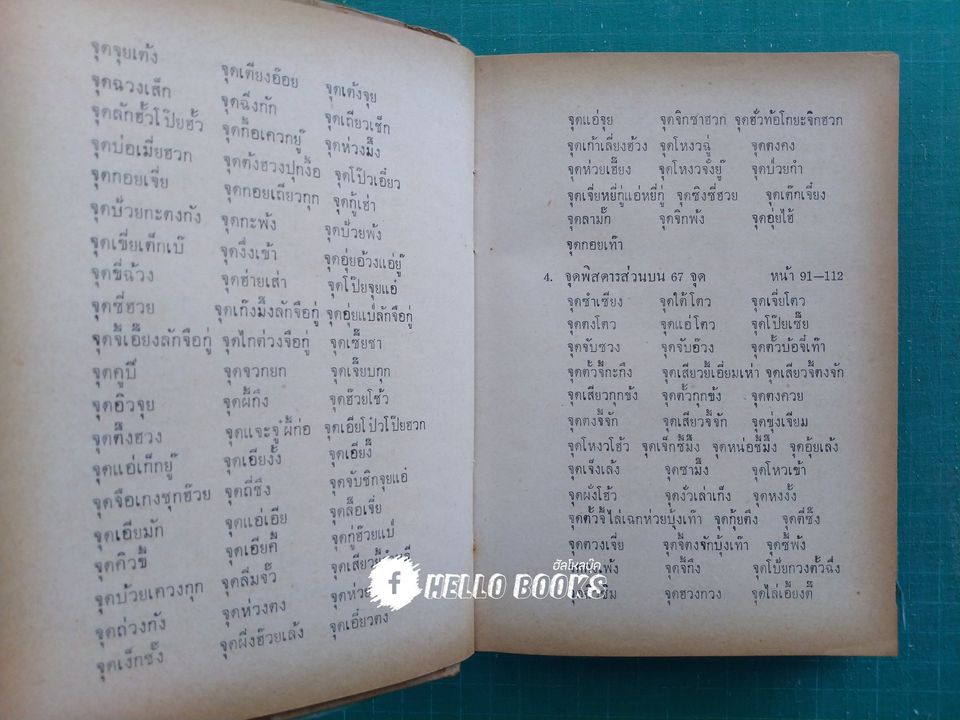 จุดจุยเต้ง จุดเตียงอ๊อย จุดเต้งจุย
จุดฉวงเส็ก จุดฉึงกัก จุดเถียวเช็ก
จุดลักฮั้วโป๊ยฮั้ว จุดก็อเควกยู๊ จุดห่วงมึ้ง
จุดบ่อเมี่ยฮวก จุดตังฮวงปุกงื้อ จุดโป๊วเอี้ยว
จุดกอยเจี่ย จุดกอยเถียวกุก จุดกู้เฮ่า
จุดป้วยกะตงกัง จุดกะพ้ง จุดป้วยพ้ง
จุดเขี่ยเต็กเบ๊ จุดงึ่งเช้า จุดอุ่ยอ้วงแอ่ยู๊
จุดขี่ฉ้วง จุดฮ่ายเล่า จุดโป๊ยจุยแอ่
จุดซี่ฮวย จุดเก๊งมึ้งลักจือกู่ จุดอุ่ยแป๋ลักจือกู่
จุดจี้เอี๊ยงลักจือกู่ จุดไกต่วงจือกู่ จุดเซี้ยชา
จุดคูบี๊ จุดจวกยก จุดเจี๊ยบกุก
จุดอิวจุย จุดผี้กึง จุดฮ๊วยโช้ว
จุดตึ๊งฮวง จุดแจะจู๋ผี้ก่อ จุดเอียโป๋วโป๊ยฮวก
จุดแอ่เก็กยู๊ จุดเอียงงั้ จุดเอียงี้
จุดจือเกงซุกฮ๊วย จุดถี่ซึง จุดจับซิกจุยแอ่
จุดเอียมัก จุดแอ่เอีย จุดลือเจี่ย
จุดคิวขี้ จุดเอียคี้ จุดกู่ฮ๊วยแป๋
จุดป้วยเควงกุก จุดลึมจั๊ว
จุดถ่วงกัง จุดห่วงตง
จุดเง็กซั้ง จุดผึ่งฮ๊วยเล้ง จุดเอี่ยวตง
จุดแอ่จุย จุดจิกซาฮวก จุดฮั่วท้อโกยะจิกฮวก
จุดเก้าเลี่ยงฮ้วง จุดโหงวฉู่ จุดตงคง
จุดห่วยเฮี้ยง จุดโหงวจั่งยู๊ จุดป่วยกำ
จุดเจี่ยหยี่กู่แอ่หยี่กู่ จุดซิงซี่ฮวย จุดเต๊กเจี่ยง
จุดลามั๊ก จุดจิกพ้ง จุดอุ่ยไฮ้
จุดกอยเท๊า
4. จุดพิสดารส่วนบน 67 จุด หน้า 91—112
จุดซำเชียง จุดใต้โตว จุดเจี่ยโตว
จุดตงโตว จุดแอ่โตว จุดโป๊ยเซี้ย
จุดจับซวง จุดจับอ๊วง จุดตั้วบ้อจี่เท๊า
จุดตั้วจี้กะกึง จุดเสียวยี้เอี่ยมเหา จุดเสียวจี้ตงจัก
จุดเสียวกุกซ้ง จุดตั้วกุกซ้ง จุดตงควย
จุดตงจี้จัก จุดเสียวจี้จัก จุดขุ่งเจียม
จุดโหงวโฮ้ว จุดเจ็กซี้มึ้ง จุดหน่อซี้มึ้ง จุดอุ้ยเล้ง
จุดเจ็งเล้ง จุดซามึ้ง จุดโหวเช้า
จุดผั่งโฮ้ว จุดงั่วเล่าเก็ง จุดหงงั้ง
จุดตั้วจี้ไล่เฉกห่วยบุ้งเท๊า จุดกุ้ยตึง จุดตี่ซึ้ง
จุดตวงเจี่ย จุดจี้ตงจักบุ้งเท๊า จุดซี้พ้ง
จุดจี้กึง จุดโป้ยกวงตั้วฉึ่ง
จุดฮวงกวง จุดไล่เอี้ยงตี้
ฮัลโหลบุ๊ค
HELLO BOOKS